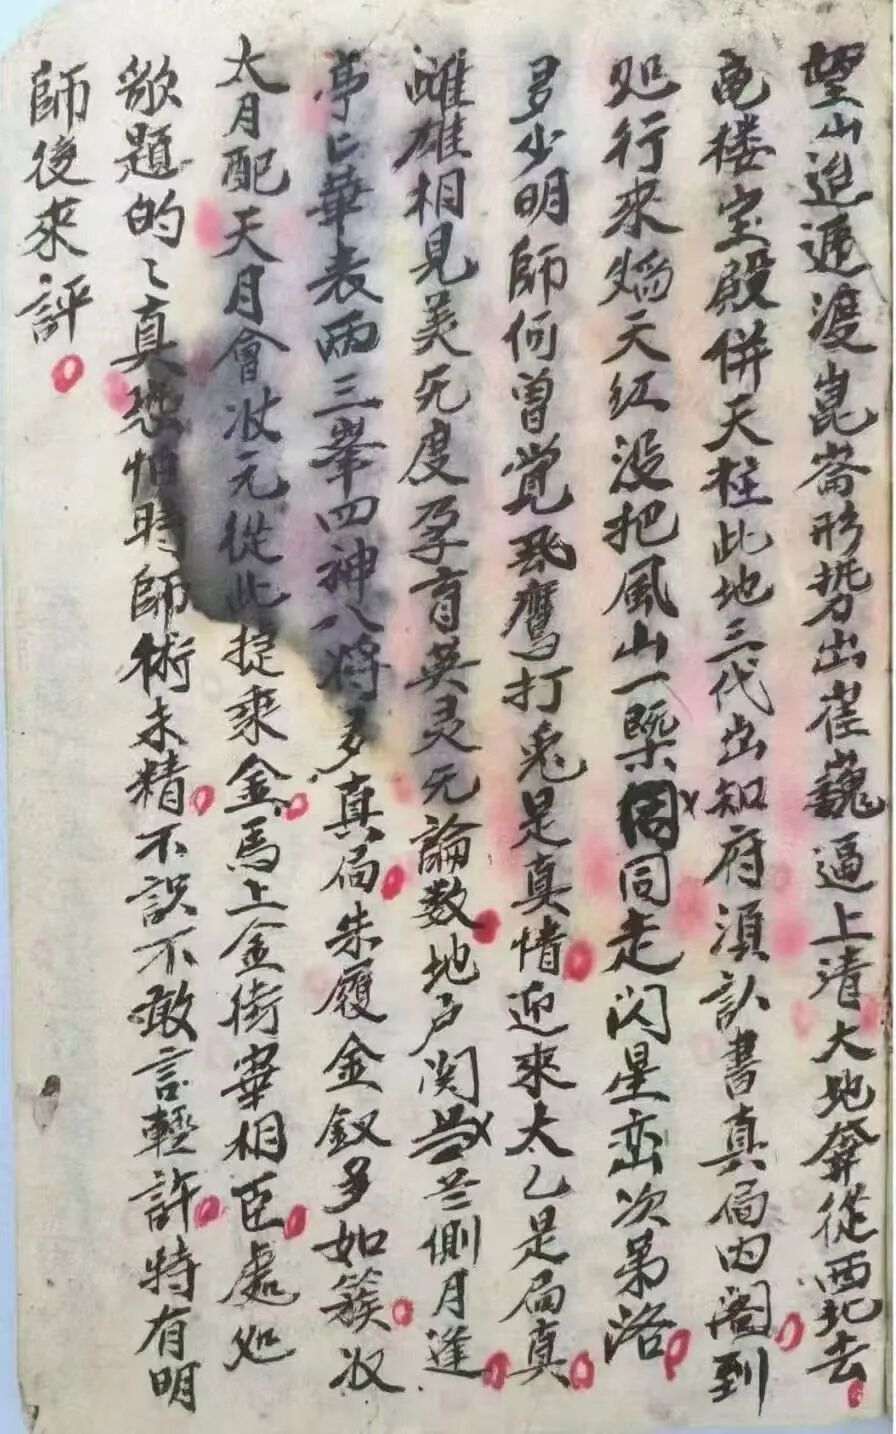 望山迢遞渡崑崙形勢出崔巍逼上清大地奔從西北去
电楼宝殿併天柱此地三代出知府須認書真局内阁到
处行来焰天红没把風山一槩同走闪星峦次第落
多少明師何曾觉飛鷹打兎是真情迎來太乙是局真
雌雄相見美无度孕育英灵无論数地户関兰側月逢
亭亡華表兩三峯四神八将多真局朱履金釵多如簇状
太月配天月會状元從此提乘金馬上金街宰相臣處处
歌題的〻真恐怕時師術未精不誤不敢言輕許特有明
師後來評